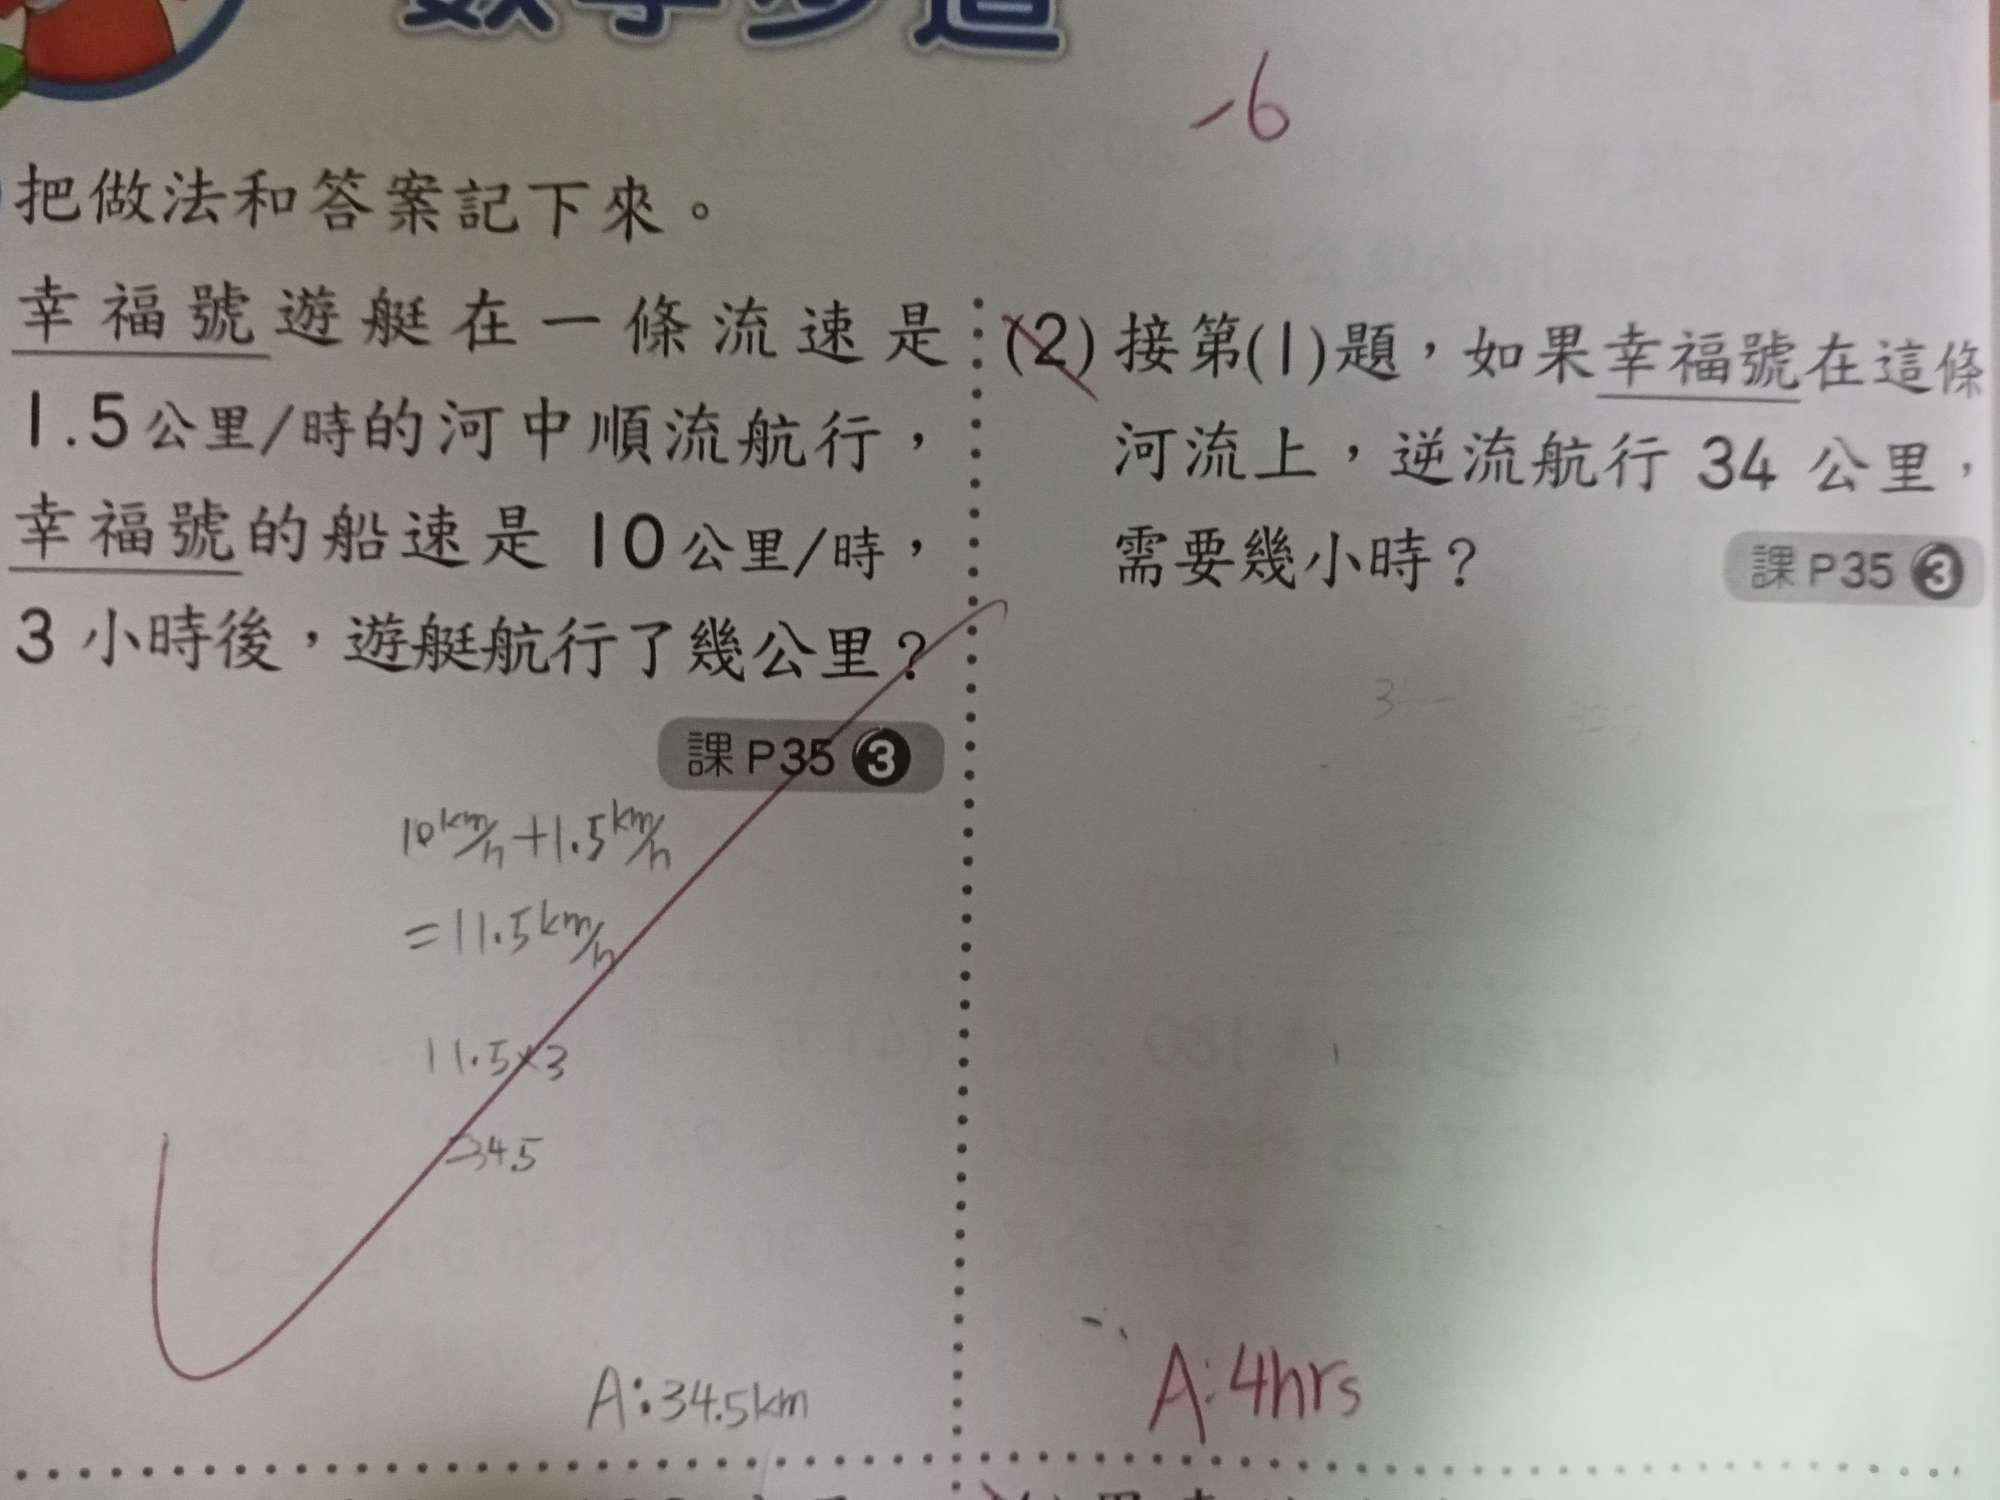 數學步道
-6
把做法和答案記下來。
幸福號遊艇在一條流速是
1.5公里/時的河中順流航行，
幸福號的船速是 10公里/時，
3 小時後，遊艇航行了幾公里？
課 P35 3
10km/h+1.5km/h
=11.5km/h
11.5×3
=34.5
A:34.5km
(2) 接第(1)題，如果幸福號在這條
河流上，逆流航行 34 公里，
需要幾小時？
課 P35 3
A:4hrs